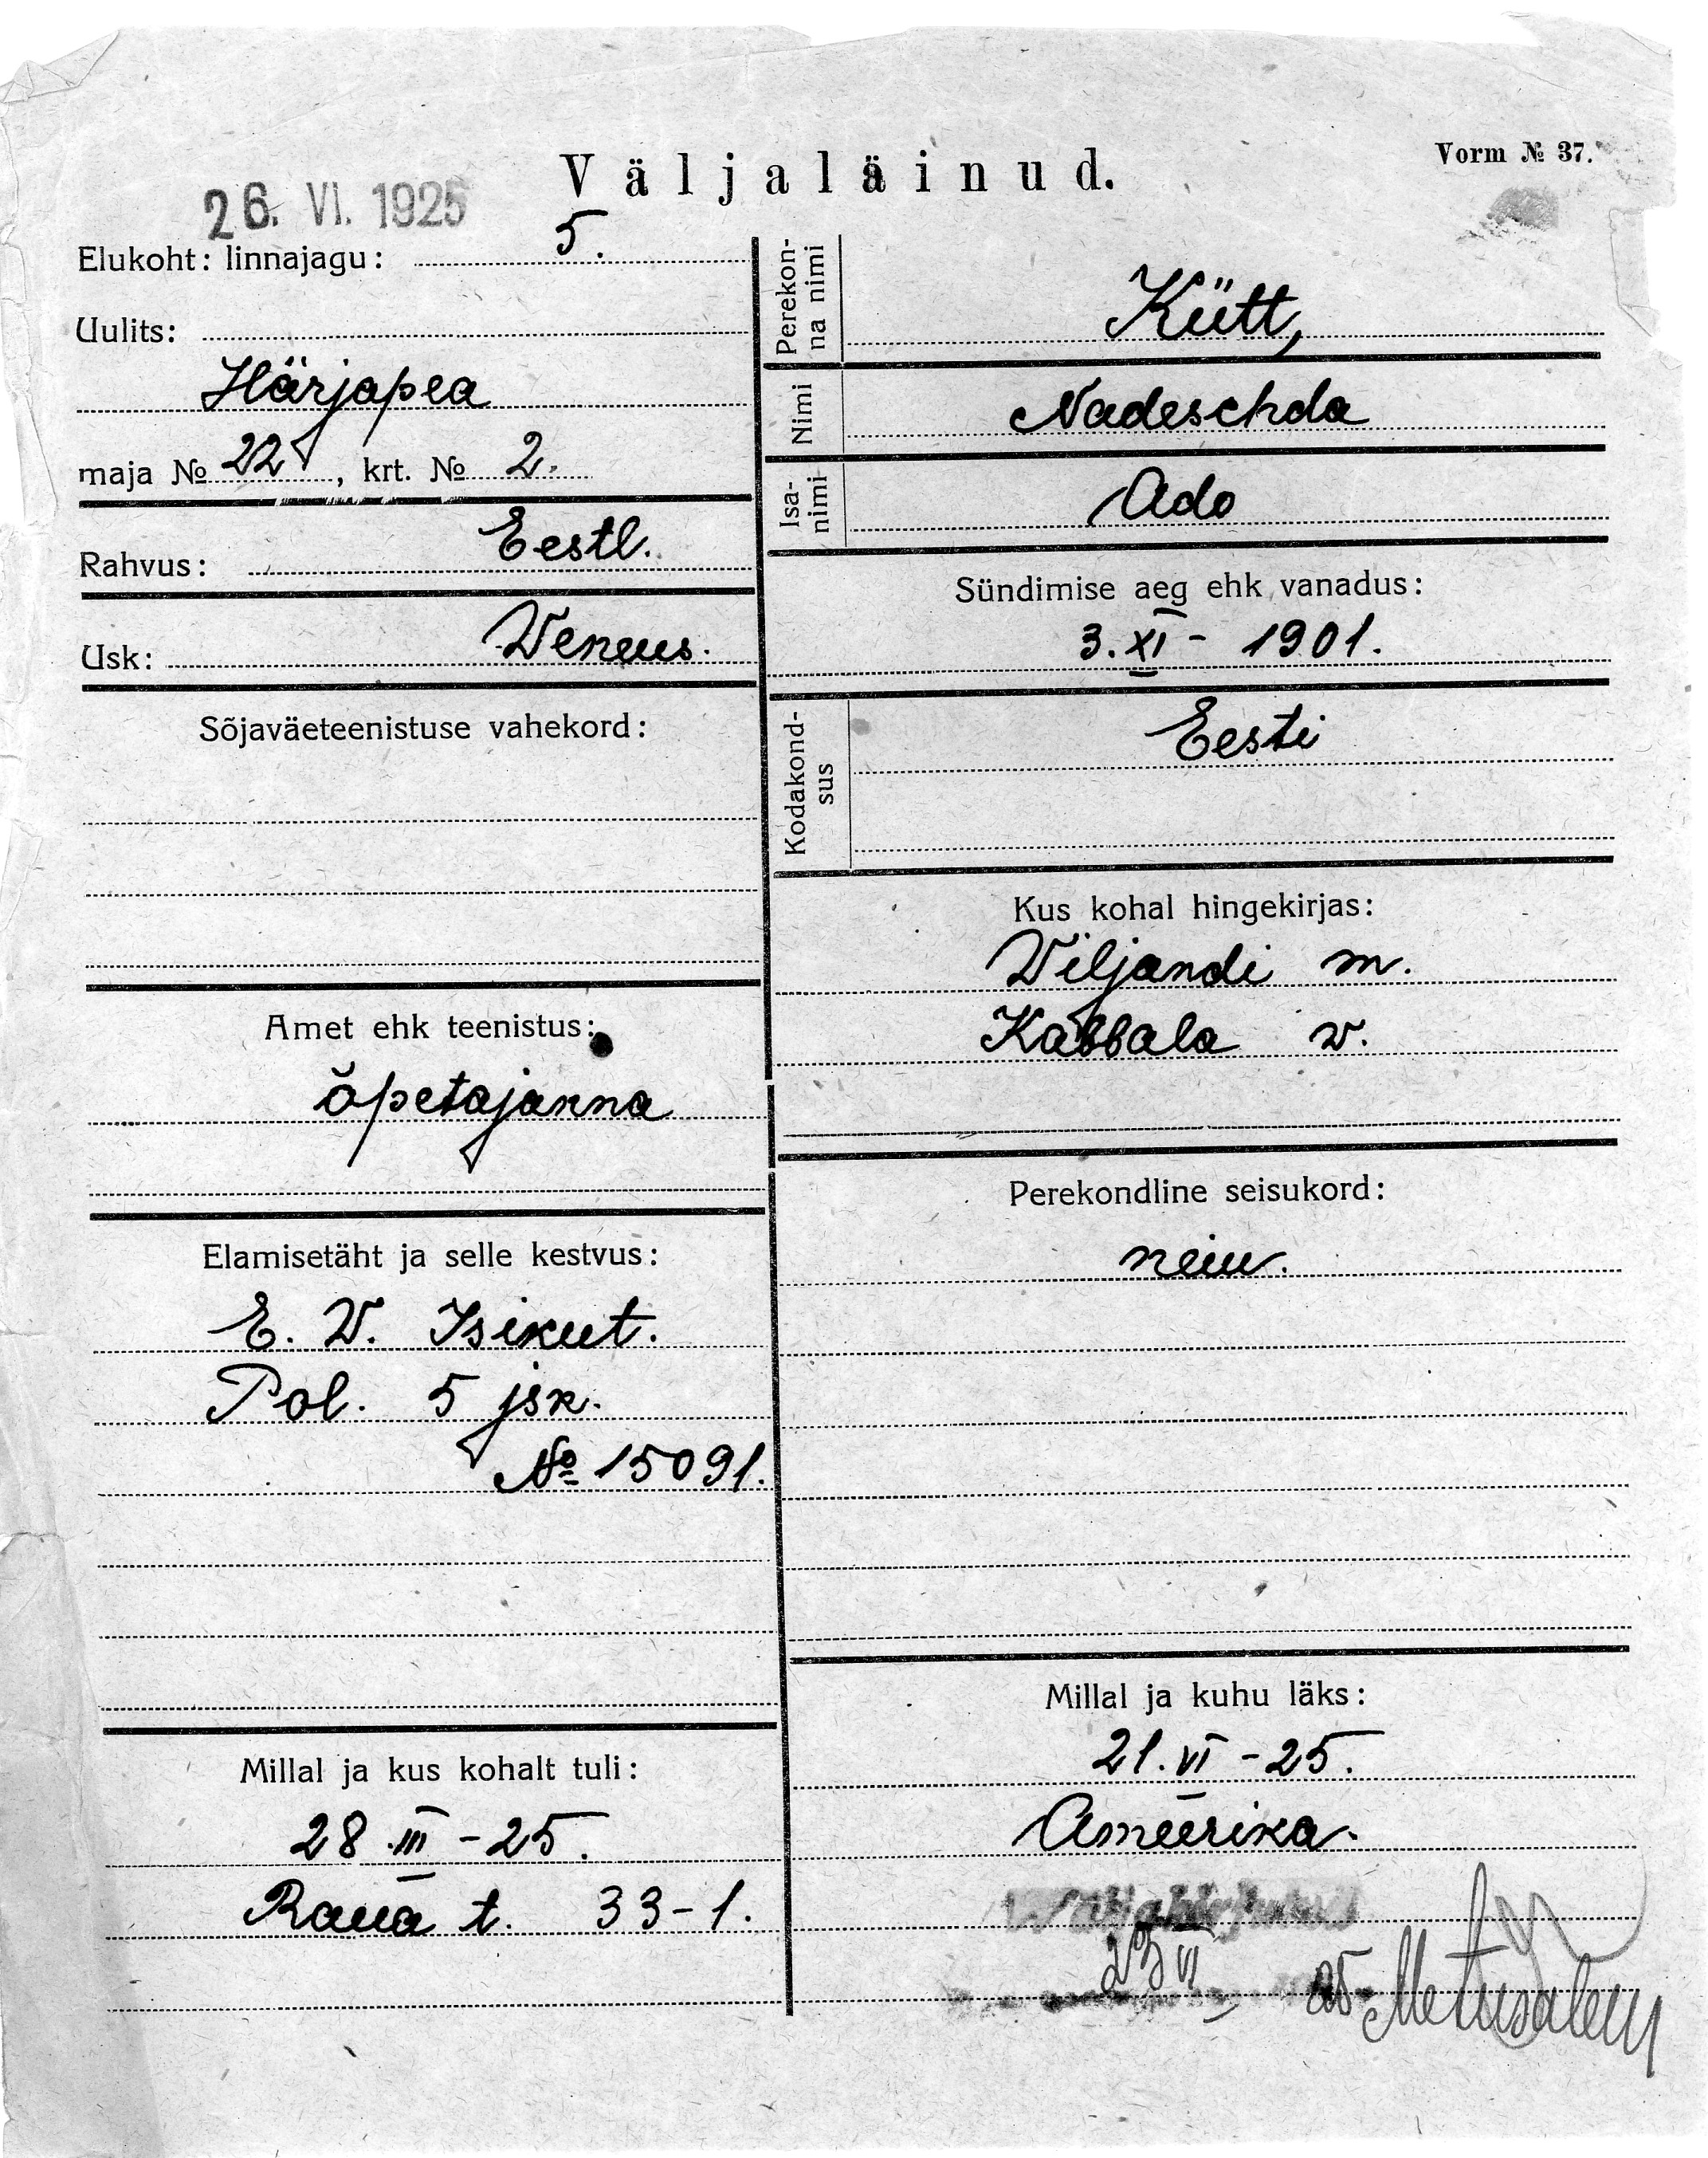 Väljaläinud.
Vorm № 37.
26. VI. 1925
Elukoht: linnajagu: 5.
Uulits:
Härjapea
maja № 22, krt. № 2.
Rahvus: Eestl.
Usk: Weneus.
Sõjaväeteenistuse vahekord:
Amet ehk teenistus:
õpetajanna
Elamisetäht ja selle kestvus:
E. W. Isikut.
Pol. 5 jsk.
№ 15091.
Millal ja kus kohalt tuli:
28.III-25.
Raua t. 33-1.
Perekon-
na nimi
Kütt,
Nimi
Nadeschda
Isa-
nimi
Ado
Sündimise aeg ehk vanadus:
3. XI - 1901.
Kodakond-
sus
Eesti
Kus kohal hingekirjas:
Wiljandi m.
Kabbala w.
Perekondline seisukord:
neiu.
Millal ja kuhu läks:
21. VI - 25.
Ameerika.
VI
Metusalem